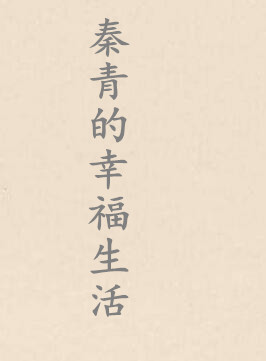 秦青的幸福生活